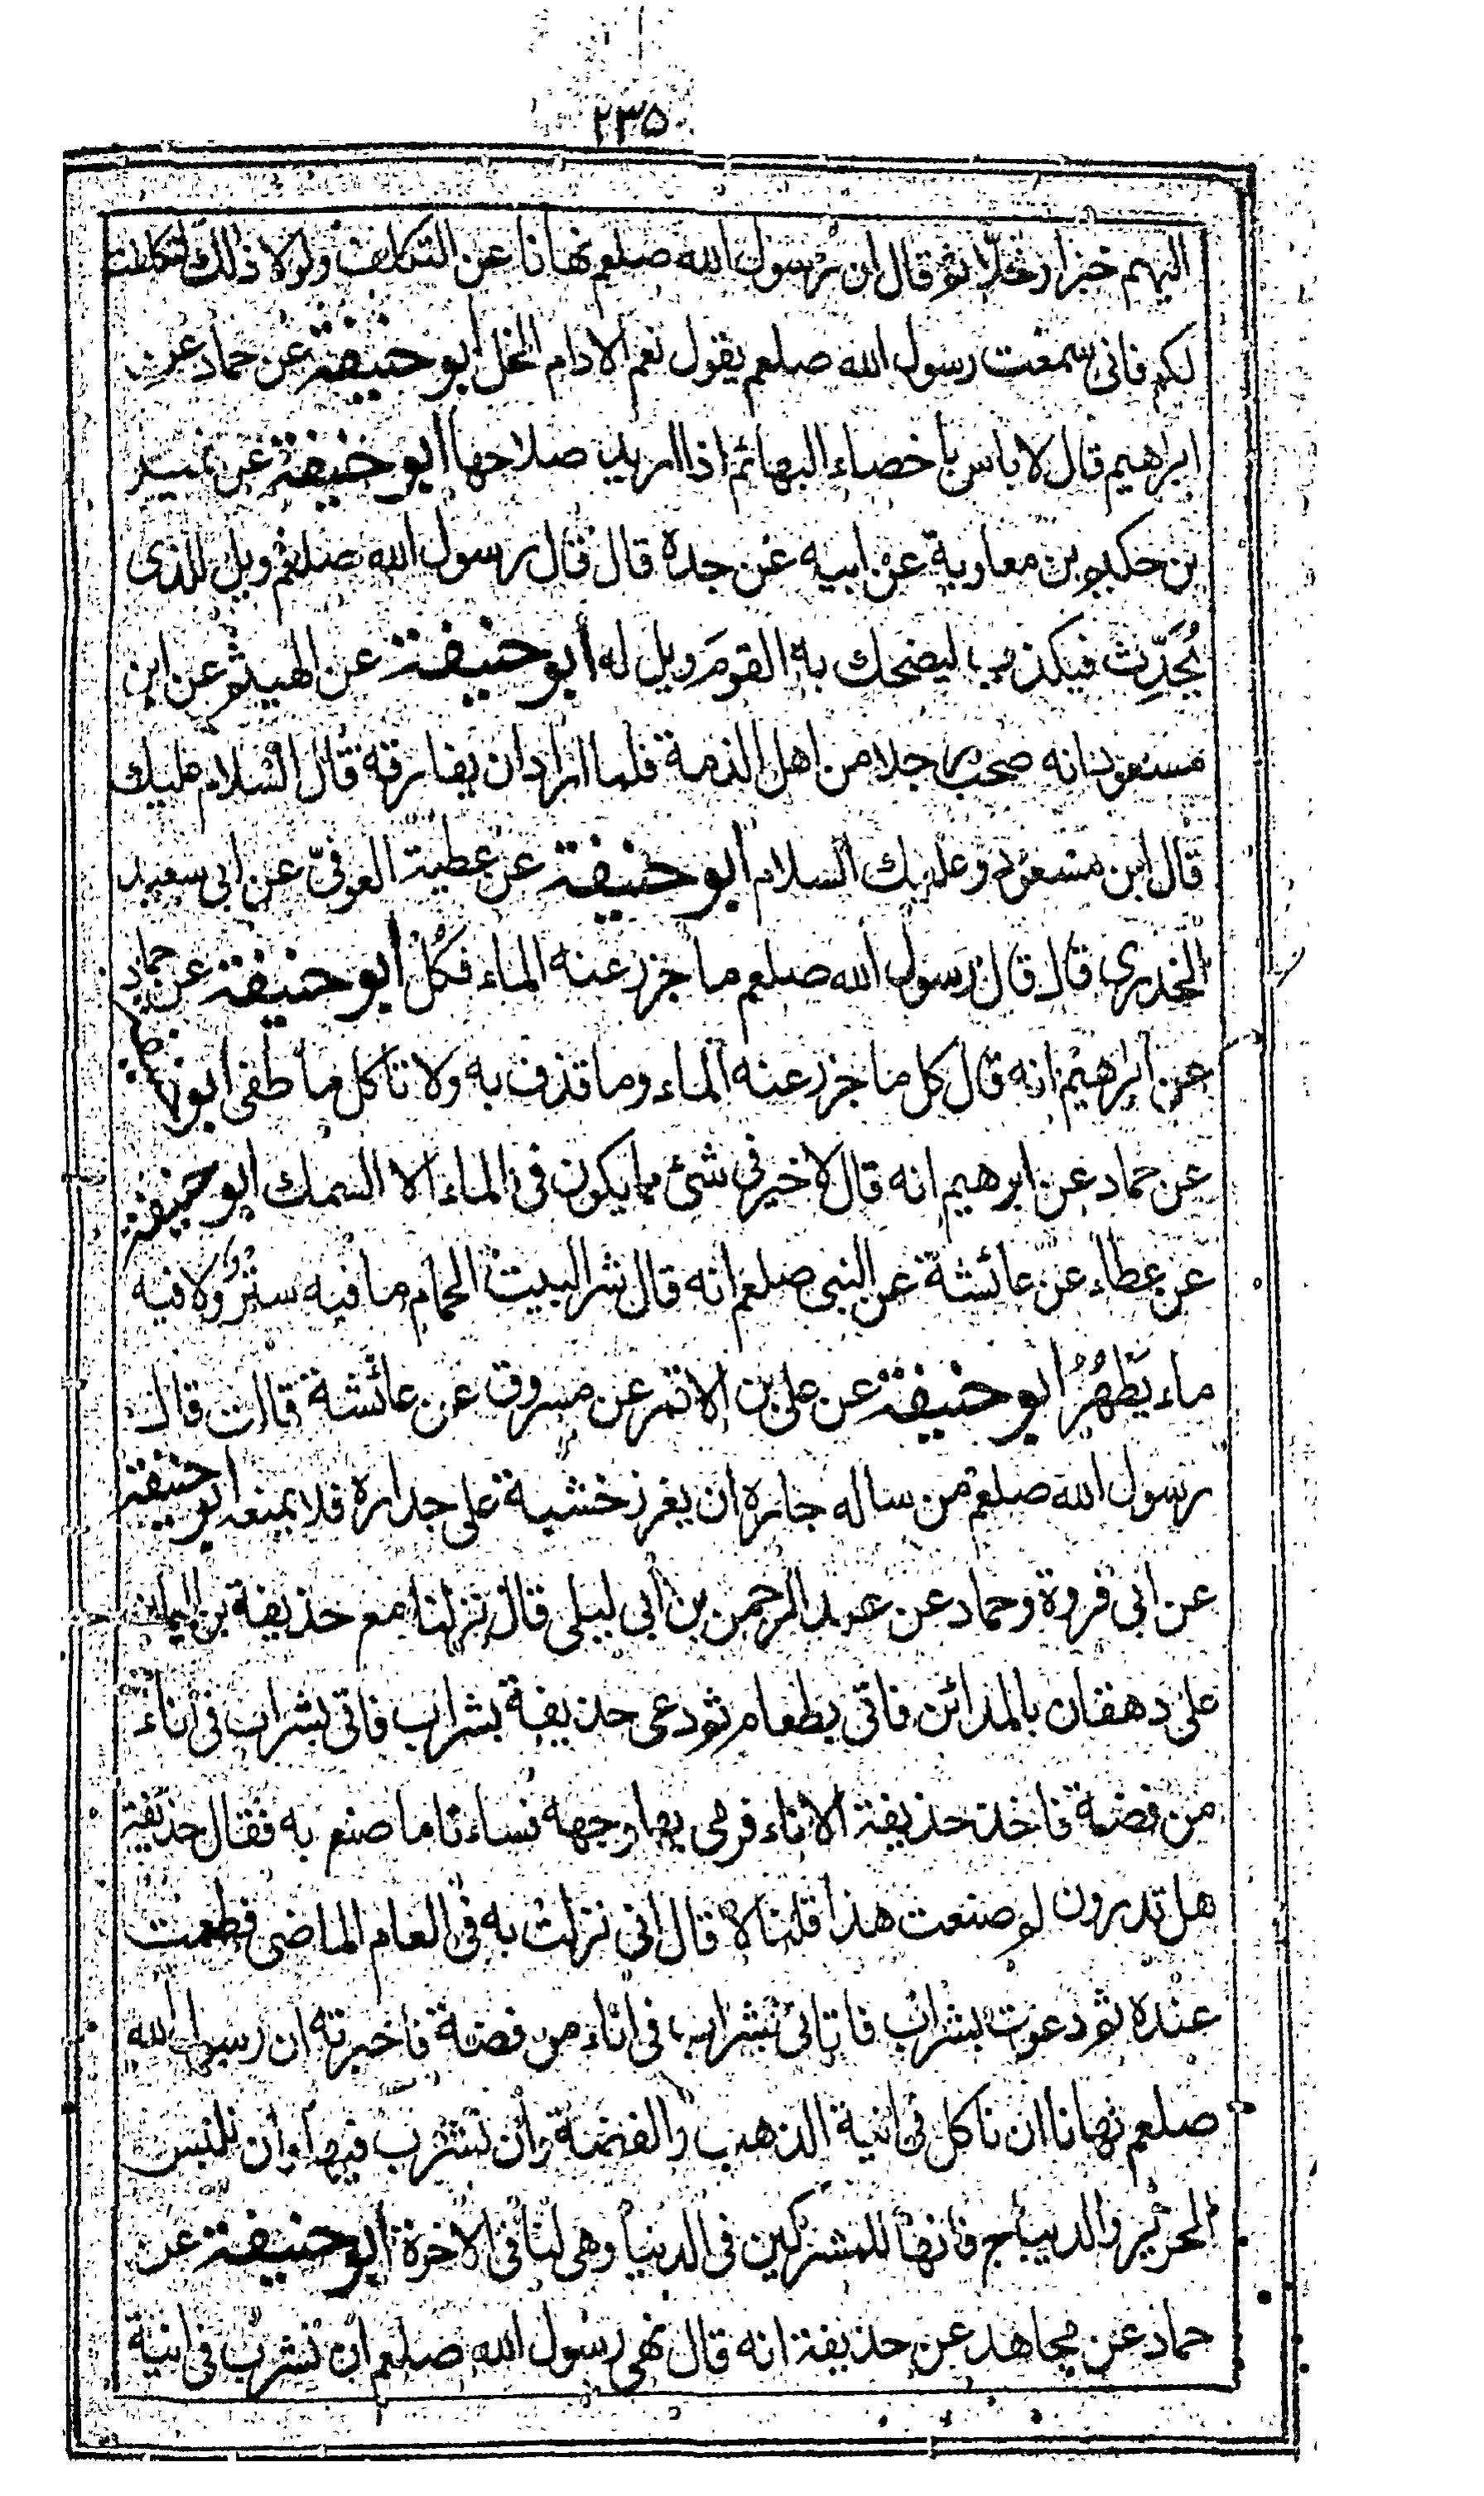 ٢٣٥
اليهم خبزا وخلا ثم قال ان رسول الله صلعم نهانا عن التكلف ولولا ذلك لتكلفت
لكم فانى سمعت رسول الله صلعم يقول نعم الادام الخل أبو حنيفة عن حماد عن
ابرهيم قال لا باس باخصاء البهائم اذا اريد صلاحها ابو حنيفة عن
بن حكيم بن معاوية عن ابيه عن جده قال قال رسول الله صلعم ويل للذى
يُحَدِّث فيكذب ليضحك به القوم ويل له أبو حنيفة عن الهيثم عن ابن
مسعود انه صحب رجلا من اهل الذمة فلما اراد ان يفارقة قال السلام عليك
قال ابن مسعود وعليك السلام ابو حنيفة عن عطية العوفىّ عن ابى سعيد
الخدرى قال قال رسول الله صلعم ما جزر عنه الماء فكُل أبو حنيفة عن حماد
عن ابرهيم انه قال كل ما جزر عنه الماء وما قذف به ولا تاكل ما طفى ابو حنيفة
عن حماد عن ابرهيم انه قال لا خير فى شئ مما يكون فى الماء الا السمك ابو حنيفة
عن عطاء عن عائشة عن النبى صلعم انه قال شر البيت الحمام ما فيه ستر ولا فيه
ماء يَطهُرُ ابو حنيفة عن على بن الاقمر عن مسروق عن عائشة قالت قال
رسول الله صلعم من ساله جاره ان يغرز خشبة على جداره فلا يمنعه ابو حنيفة
عن ابى فروة وحماد عن عبد الرحمن بن أبى ليلى قال نزلنا مع حذيفة بن اليمان
على دهقان بالمدائن فاتى بطعام ثم دعى حذيفة بشراب فاتى بشراب فى اناء
من فضة فاخذ حذيفة الاناء فرمى بها وجهه فساءنا ما صنع به فقال حذيفة
هل تدرون لم صنعت هذا قلنا لا قال انى نزلت به فى العام الماضى فطعمت
عنده ثم دعوت بشراب فاتانى بشراب فى اناء من فضة فاخبرته ان رسول الله
صلعم نهانا ان ناكل فى انية الذهب والفضة وأن نشرب فيها وان نلبس
الحرير والديباج فانها للمشركين فى الدنيا وهى لنا فى الاخرة ابو حنيفة عن
حماد عن مجاهد عن حذيفة انه قال نهى رسول الله صلعم ان نشرب فى انية